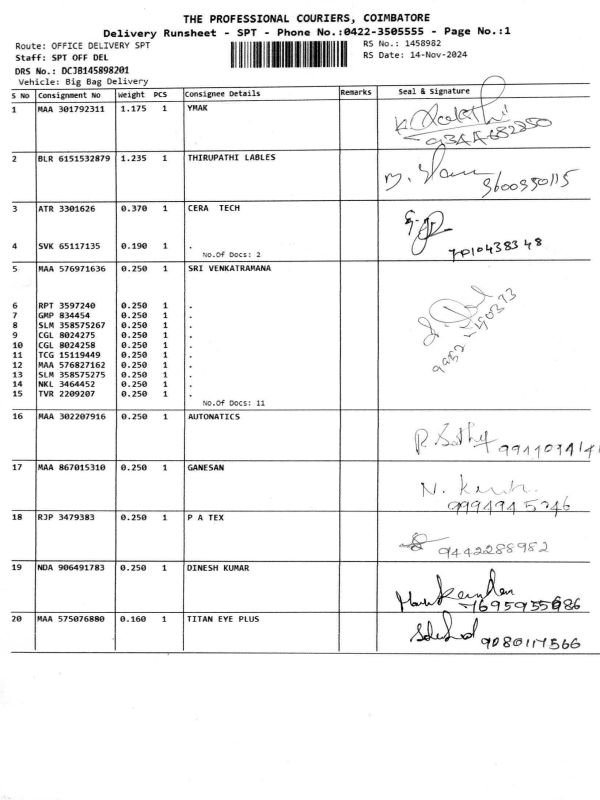 THE PROFESSIONAL COURIERS, COIMBATORE
Delivery Runsheet - SPT - Phone No.:0422-3505555 - Page No.:1
Route: OFFICE DELIVERY SPT
RS No.: 1458982
Staff: SPT OFF DEL
RS Date: 14-Nov-2024
DRS No.: DCJB145898201
Vehicle: Big Bag Delivery
S No Consignment No Weight PCS Consignee Details Remarks Seal & Signature
1 MAA 301792311 1.175 1 YMAK
2 BLR 6151532879 1.235 1 THIRUPATHI LABLES
9600350115
3 ATR 3301626 0.370 1 CERA TECH
4 SVK 65117135 0.190 1 .
7010438348
No.Of Docs: 2
5 MAA 576971636 0.250 1 SRI VENKATRAMANA
6 RPT 3597240 0.250 1 .
7 GMP 834454 0.250 1 .
8 SLM 358575267 0.250 1 .
9 CGL 8024275 0.250 1 .
10 CGL 8024258 0.250 1 .
11 TCG 15119449 0.250 1 .
12 MAA 576827162 0.250 1 .
13 SLM 358575275 0.250 1 .
14 NKL 3464452 0.250 1 .
15 TVR 2209207 0.250 1 .
No.Of Docs: 11
16 MAA 302207916 0.250 1 AUTONATICS
17 MAA 867015310 0.250 1 GANESAN
9994945246
18 RJP 3479383 0.250 1 P A TEX
9442288982
19 NDA 906491783 0.250 1 DINESH KUMAR
20 MAA 575076880 0.160 1 TITAN EYE PLUS
9080117566